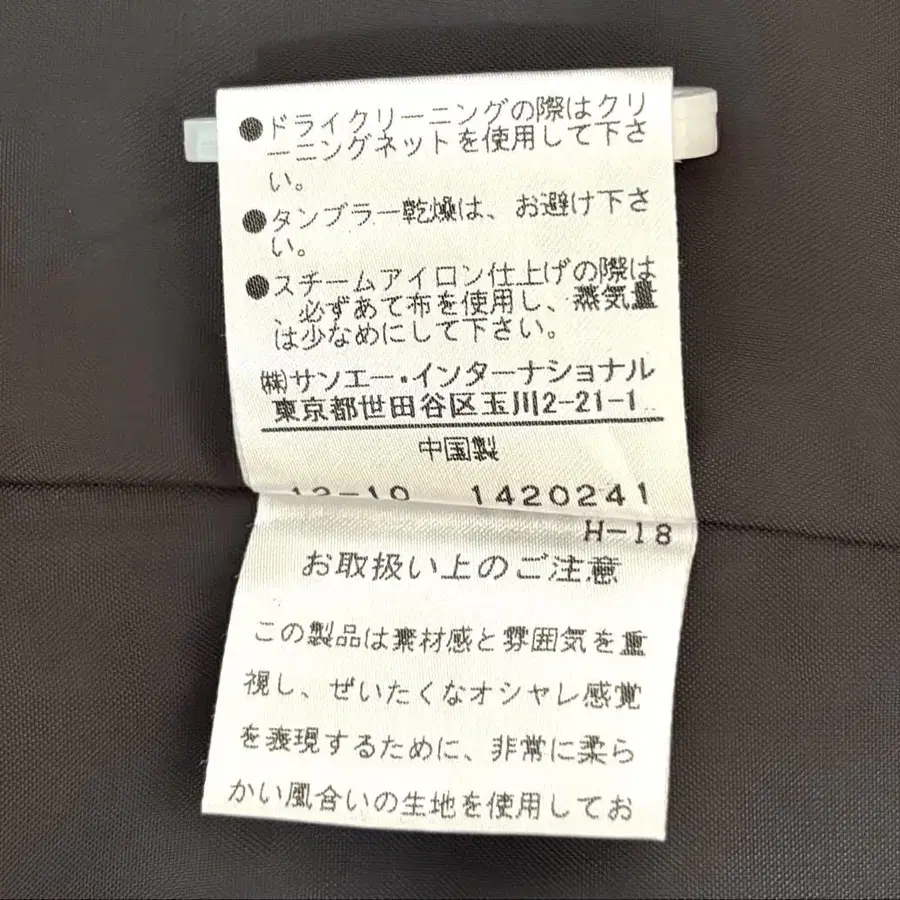 ●ドライクリーニングの際はクリ
ーニングネットを使用して下さ
い。
●タンブラー乾燥は、お避け下さ
い。
●スチームアイロン仕上げの際は
、必ずあて布を使用し、蒸気量
は少なめにして下さい。
㈱サンエー・インターナショナル
東京都世田谷区玉川2-21-1
中国製
12-10 1420241
H-18
お取扱い上のご注意
この製品は素材感と雰囲気を重
視し、ぜいたくなオシャレ感覚
を表現するために、非常に柔ら
かい風合いの生地を使用してお